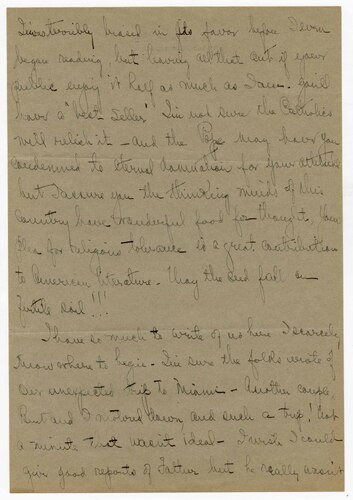 I was terribly biased in its favor before I even
began reading, but leaving all that out if your
public enjoy it half as much as I am - you'll
have a "best seller" I'm not sure the Catholics
will relish it - and the Pope may have you
condemned to eternal damnation for your attitude
but I assure you the thinking minds of this
country have wonderful food for thought. Your
plea for religious tolerance is a great contribution
to American literature. May the seed fall on
fertile soil!!!
I have so much to write of us here I scarcely
know where to begin - I'm sure the folks wrote of
our unexpected trip to Miami - Another couple
and I motored down and such a trip! Not
a minute that wasn't ideal - I wish I could
give good reports of Father but he really wasn't